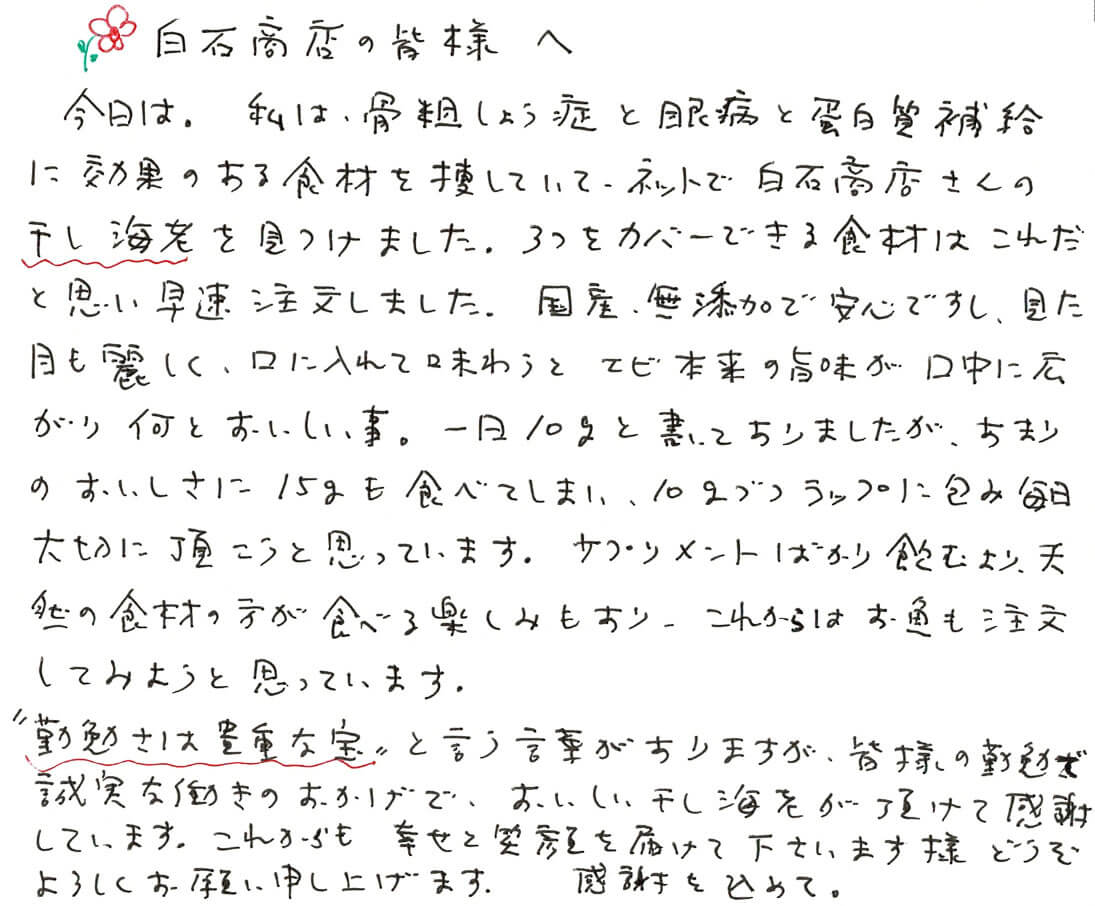 白石商店の皆様へ
今日は。 私は、骨粗しょう症と眼病と蛋白質補給
に効果のある食材を捜していて、ネットで白石商店さんの
干し海老を見つけました。3つをカバーできる食材はこれだ
と思い早速注文しました。国産、無添加で安心ですし、見た
目も麗しく、口に入れて味わうとエビ本来の旨味が口中に広
がり何とおいしい事。一日10gと書いてありましたが、あまり
のおいしさに15gも食べてしまい、10gづつラップに包み毎日
大切に頂こうと思っています。サプリメントばかり飲むより、天
然の食材の方が食べる楽しみもあり、これからはお魚も注文
してみようと思っています。
"勤勉さは貴重な宝"と言う言葉がありますが、皆様の勤勉で
誠実な働きのおかげで、おいしい干し海老が頂けて感謝
しています。これからも幸せと笑顔を届けて下さいます様どうぞ
よろしくお願い申し上げます。 感謝を込めて。